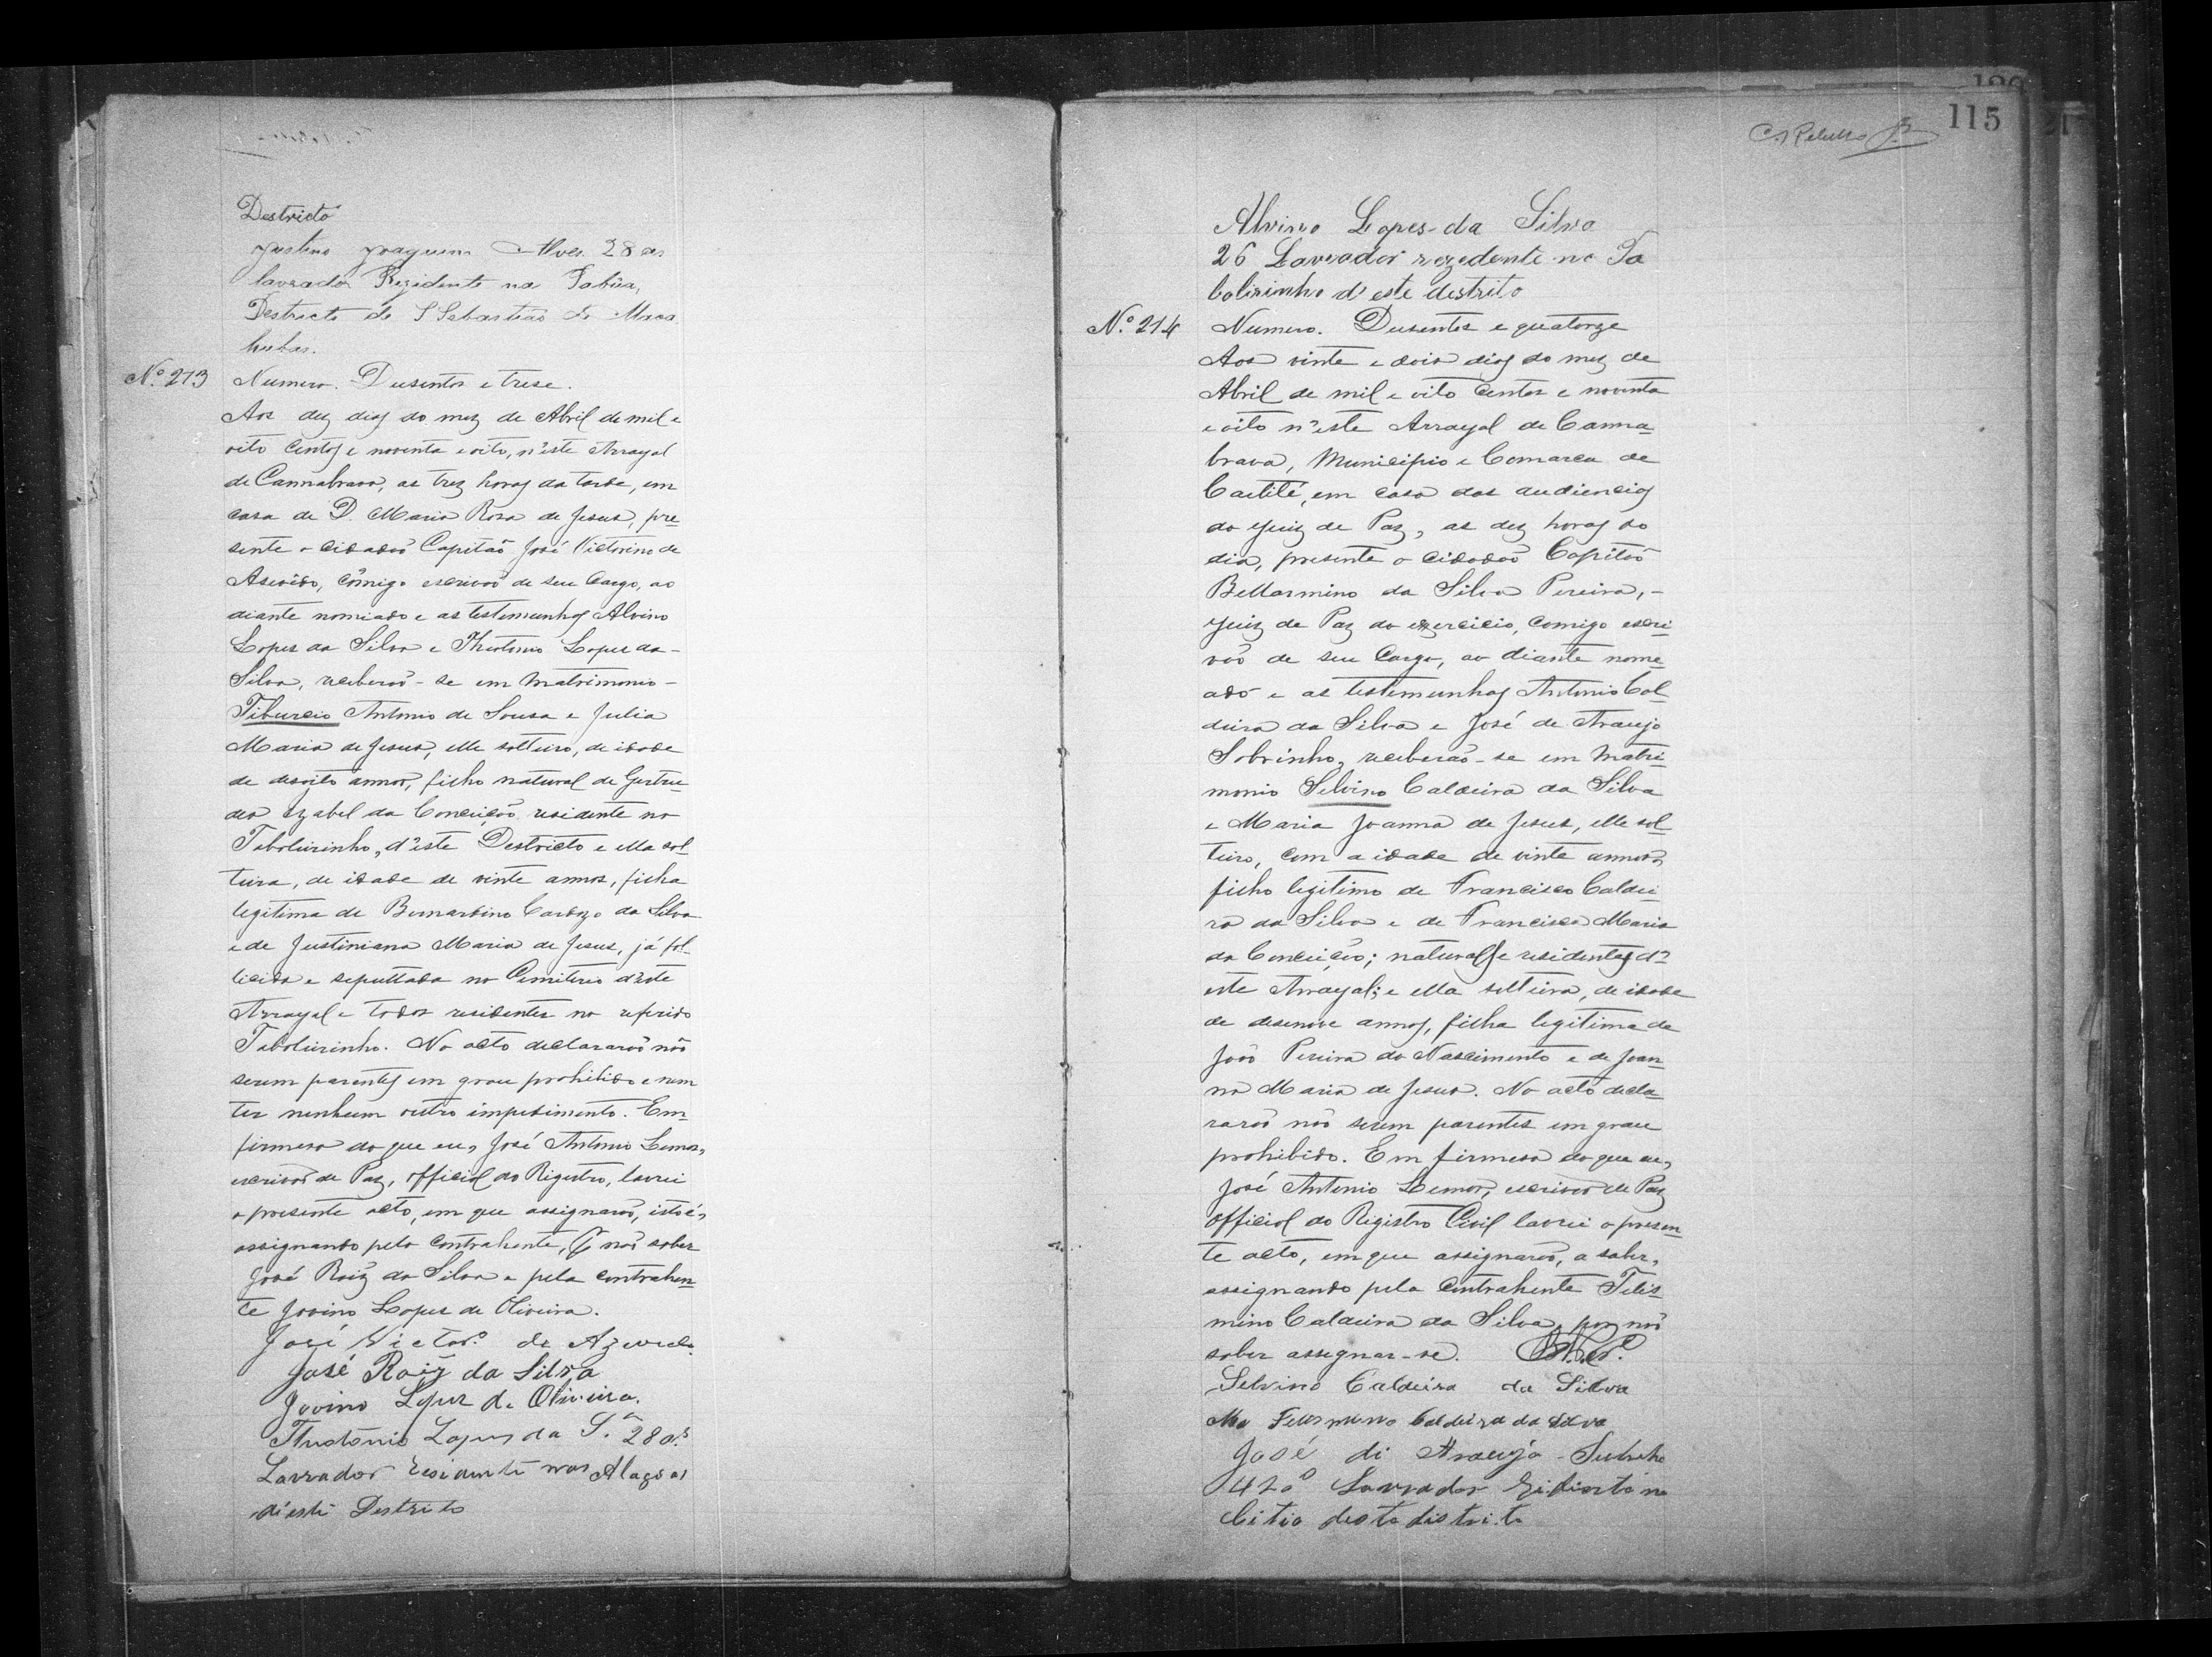 Destricto
Justino Joaquim Alves 28 as
lavrador Rezidente na Fabica,
Destricto de S Sebastião de Maca
hubas.
Nº 213 Numero. Dusentos e trese.
Aos dez dias do mez de Abril de mil e
oito centos e noventa e oito, n'este Arrayal
de Cannabrava, as trez horas da tarde, em
casa de D. Maria Rosa de Jesus, pre
sente o cidadão Capitão José Victorino de
Asevêdo, cõmigo escrivão de seu Cargo, ao
diante nomiado e as testemunhas Alvino
Lopes da Silva e Theotonio Lopes da -
Silva, receberão - se em Matrimonio -
Tiburcio Antonio de Sousa e Julia
Maria de Jesus, elle solteiro, de idade
de desoito annos, filho natural de Gertru
des Izabel da Conceição, residente no
Taboleirinho, d'este Destricto e ella sol
teira, de idade de vinte annos, filha
legitima de Bernardino Cardozo da Silva
e de Justiniana Maria de Jesus, já fal
licida e sepultada no Cemiterio d'este
Arrayal e todos residentes no referido
Taboleirinho. No acto declararão não
serem parentes em grau prohibido e nem
ter nenhum outro impedimento. Em
firmesa do que eu, José Antonio Lemos,
escrivão de Paz, official do Rigistro, lavrei
o presente acto, em que assignarão, isto é,
assignando pelo contrahente, não saber
José Roiz da Silva e pela contrahen
te Jovino Lopes de Oliveira.
José Victor.º de Azevedo
José Roiz da Silva
Jovino Lopes de Oliveira.
Theotonio Lopes da S.ª 28 a.s
Lavrador residente nas Alagoas
d'este Destrito
115
Alvino Lopes da Silva
26 Lavrador rezedente no Ta
bolirinho d'este destrito
Nº 214 Numero. Dusentos e quatorze
Aos vinte e dois dias do mez de
Abril de mil e oito centos e noventa
e oito n'este Arrayal de Canna
brava, Municipio e Comarca de
Caetité, em casa das audiencias
do Juiz de Paz, as dez horas do
dia, presente o cidadão Capitão
Bellarmino da Silva Pereira, -
Juiz de Paz do exercicio, comigo escri
vão de seu Cargo, ao diante nome
ado e as testemunhas Antonio Cal
deira da Silva e José de Araujo
Sobrinho, receberão - se em Matri
monio Selvino Caldeira da Silva
e Maria Joanna de Jesus, elle sol
teiro, com a idade de vinte annos,
filho legitimo de Francisco Caldei
ra da Silva e de Francisca Maria
da Conceição; naturaes e residentes d'
este Arrayal; e ella solteira, de idade
de desenove annos, filha legitima de
João Pereira do Nascimento e de Joan
na Maria de Jesus. No acto decla
rarão não serem parentes em grau
prohibido. Em firmesa do que eu,
José Antonio Lemos, escrivão de Paz
official do Registro Civil lavrei o presen
te acto, em que assignarão, a saber,
assignando pela Contrahente Felis
mino Caldeira da Silva, por não
saber assignar-se.
Selvino Caldeira da Silva
Felismino Caldeira da Silva
José di Araujo Subrinho
42 aº Lavrador Ridente no
Citio deste distrito